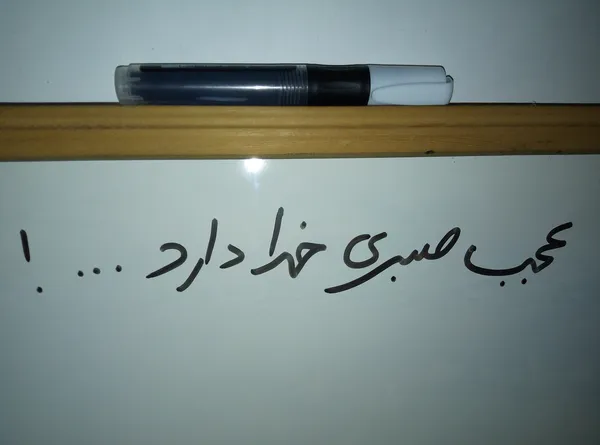 عجب صبری خدا دارد ... !